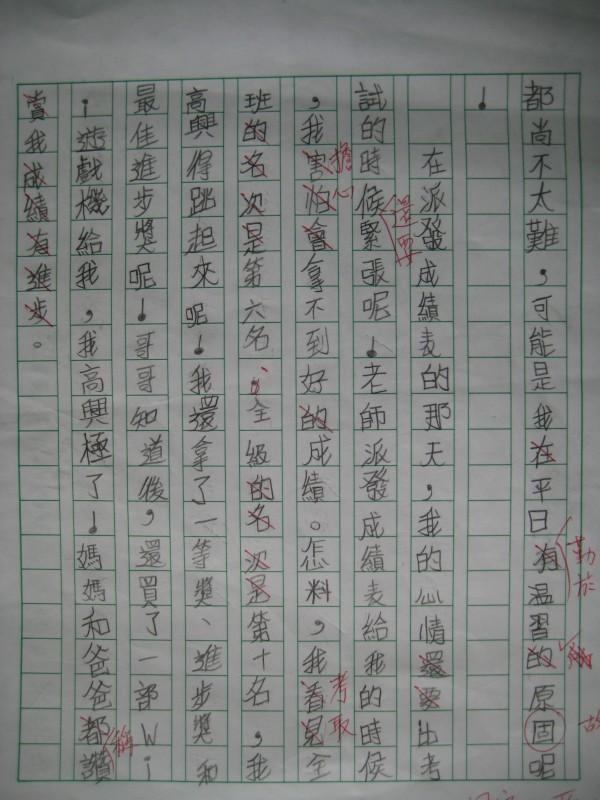 都尚不太難，可能是我在平日有温習的原固呢
！
在派發成績表的那天，我的心情還要比考
試的時候緊張呢！老師派發成績表給我的時候
，我害怕會拿不到好的成績。怎料，我看見全
班的名次是第六名，全級的名次是第十名，我
高興得跳起來呢！我還拿了一等獎、進步獎和
最佳進步獎呢！哥哥知道後，還買了一部Wi
i遊戲機給我，我高興極了！媽媽和爸爸都讚
賞我成績有進步。
還要
擔心
考取
勤於
稱